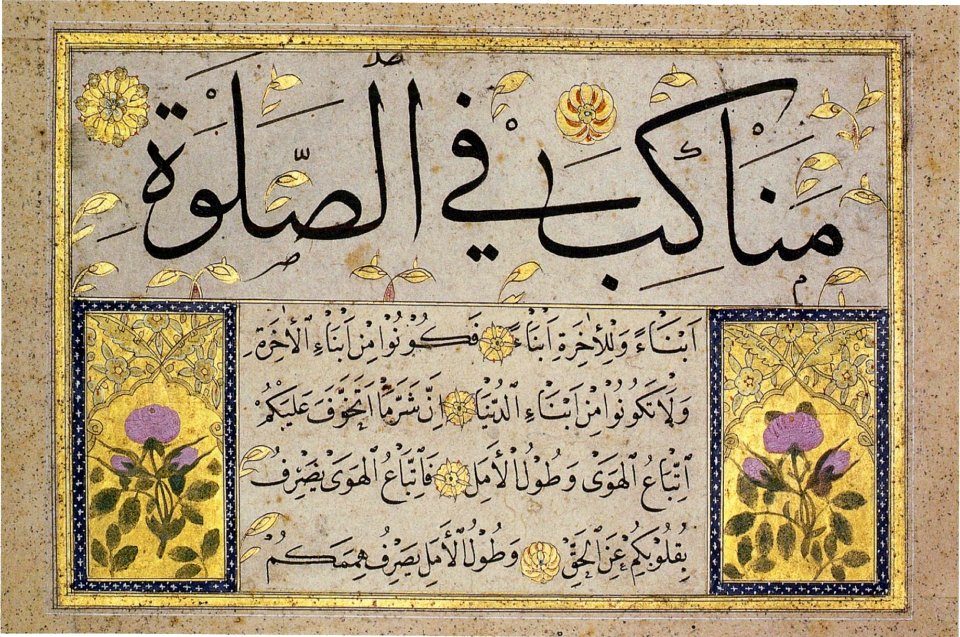 مَنَاكِبَ فِي الصَّلٰوةِ
اَبْنَاءً وَلِلْاٰخِرَةِ اَبْنَاءً فَكُونُوا مِنْ اَبْنَاءِ الْاٰخِرَةِ
وَلَا تَكُونُوا مِنْ اَبْنَاءِ الدُّنْيَا اِنَّ شَرَّ مَا اَتَخَوَّفُ عَلَيْكُمْ
اِتِّبَاعُ الْهَوٰى وَطُولُ الْاَمَلِ فَاتِّبَاعُ الْهَوٰى يَصْرِفُ
بِقُلُوبِكُمْ عَنِ الْحَقِّ وَطُولُ الْاَمَلِ يَصْرِفُ هِمَمَكُمْ